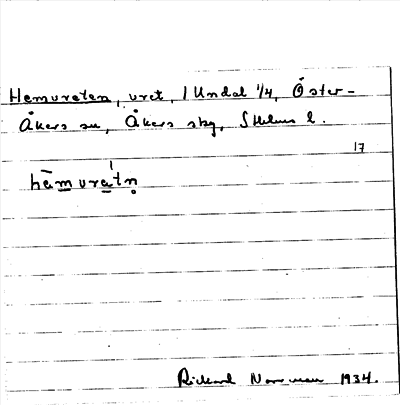 Hemvreten, vret, 1 Undal 1/4, Öster-
Åkers sn, Åkers skg, Sthlms l.
17
hēmvrèt'n̥
Rickard Norrman 1934.